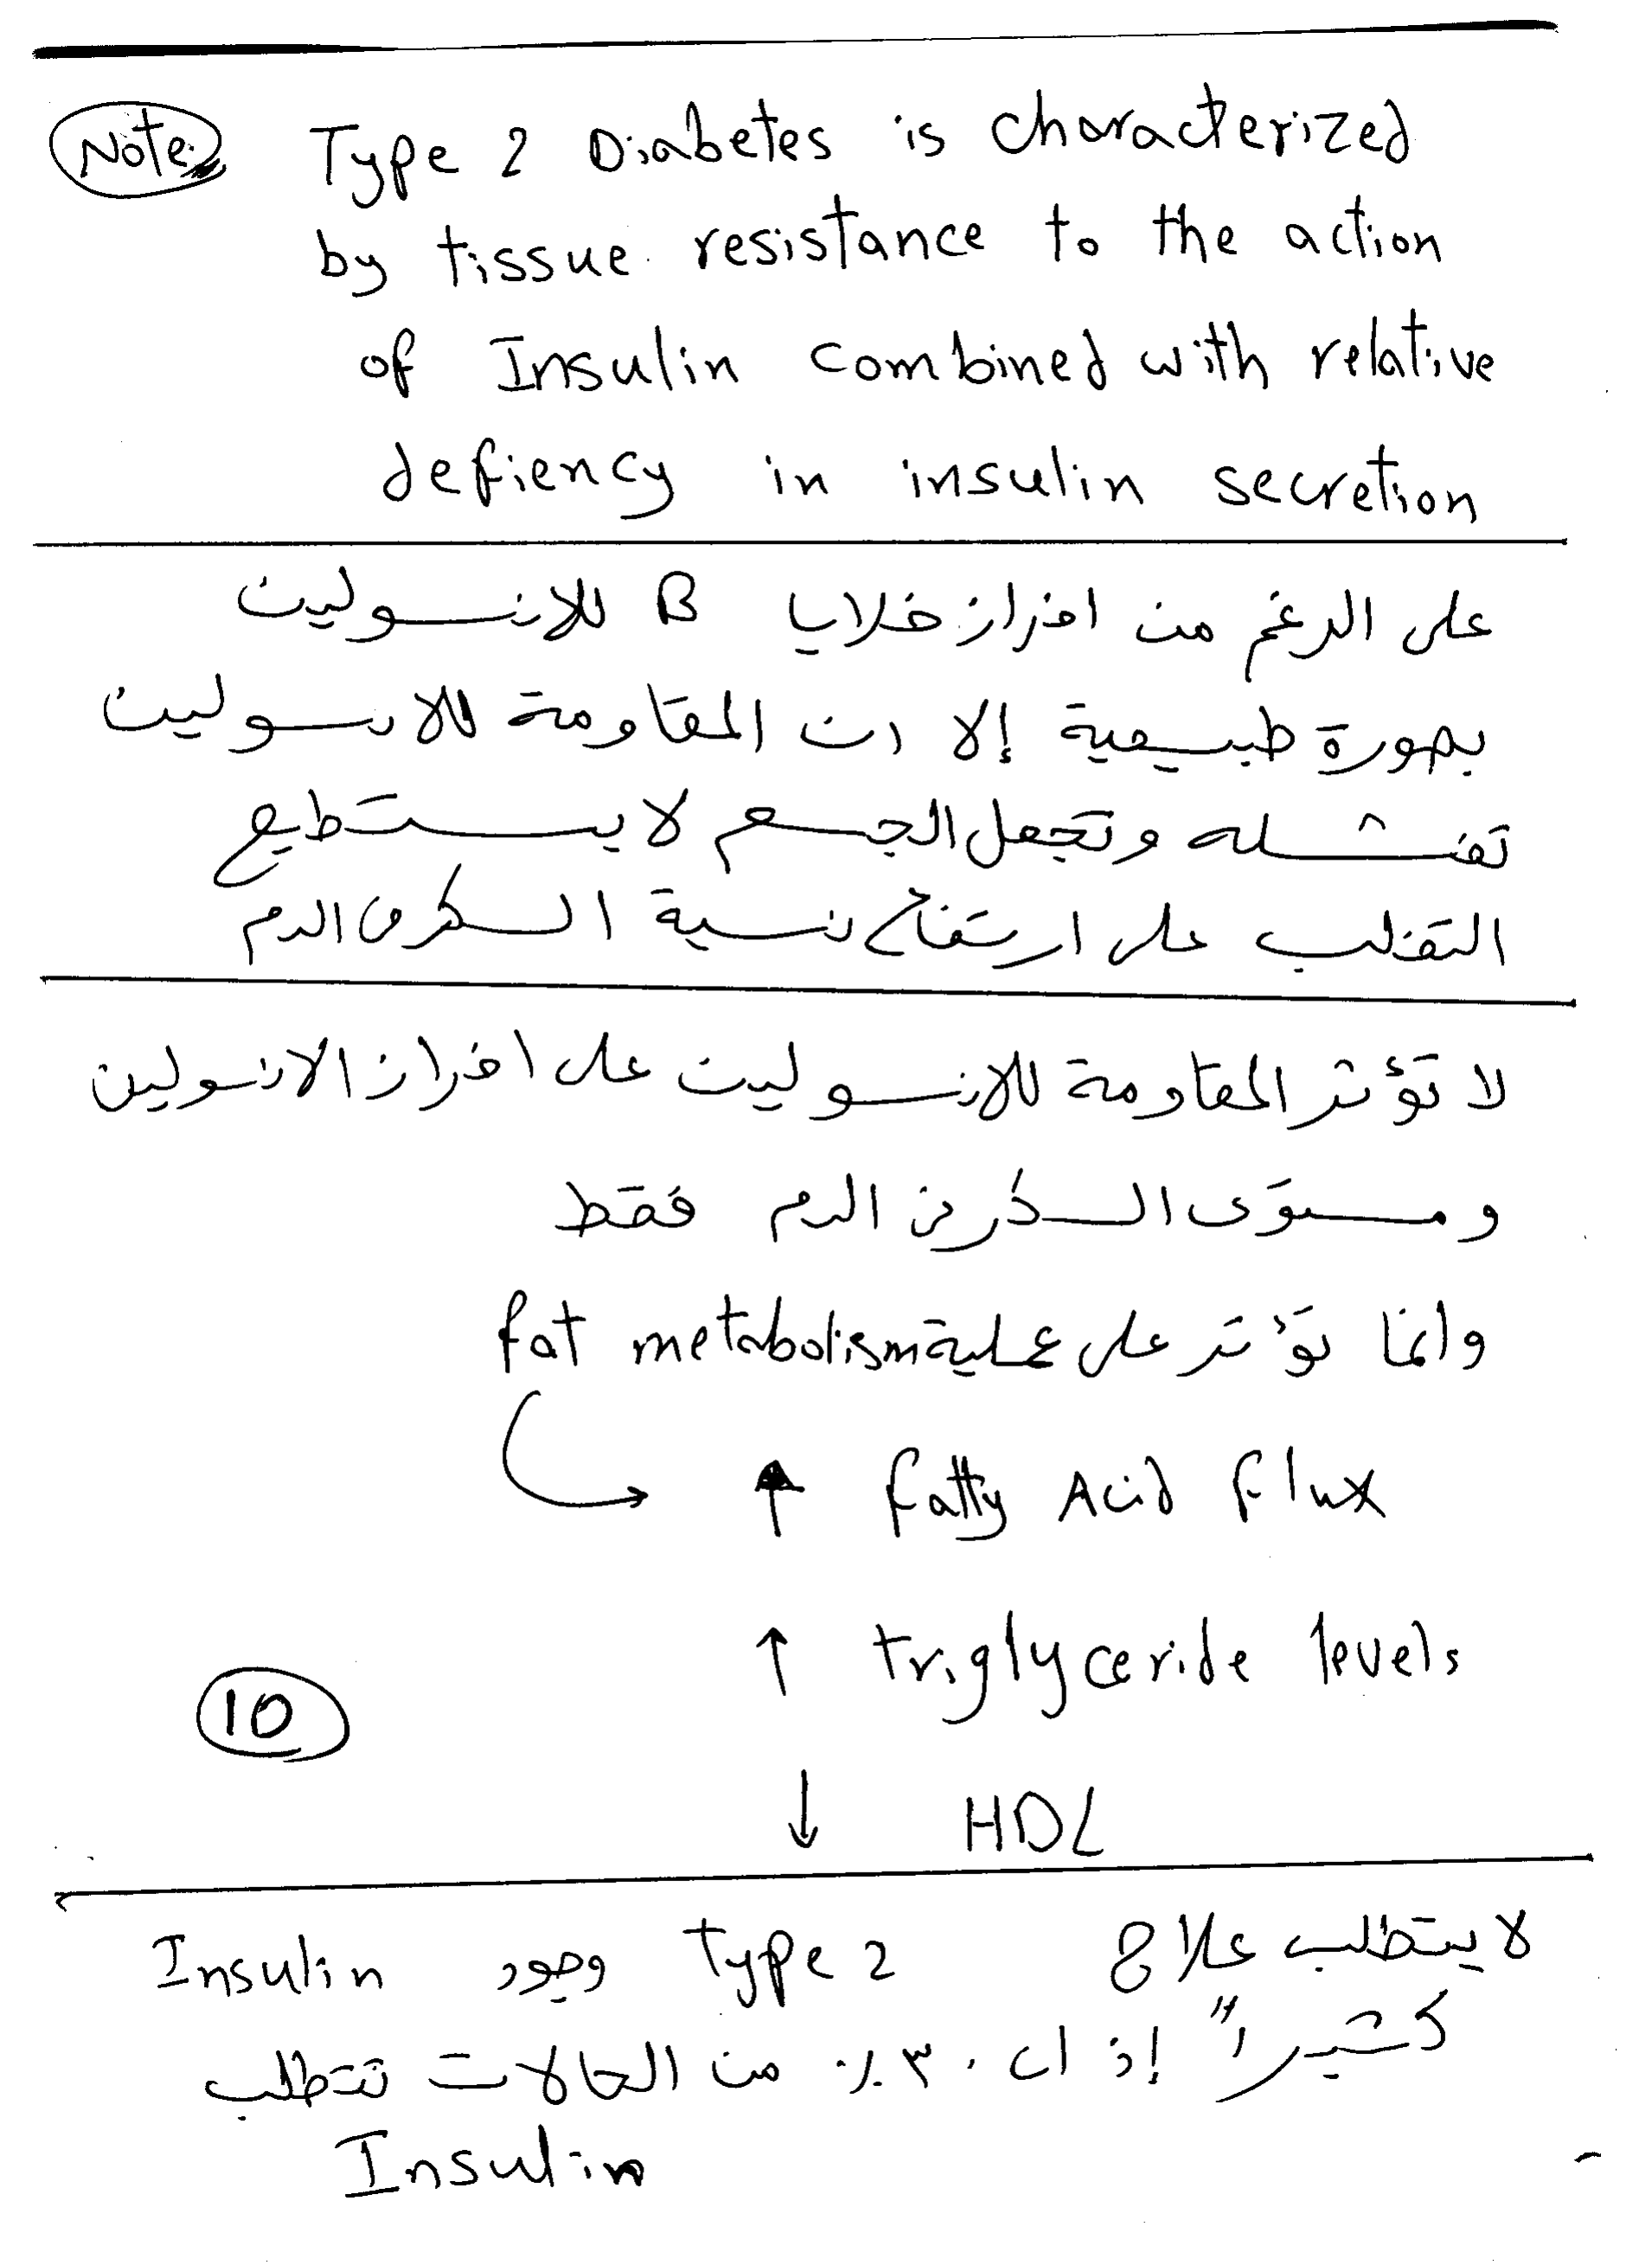 Note Type 2 Diabetes is characterized
by tissue resistance to the action
of Insulin combined with relative
defiency in insulin secretion
على الرغم من افراز خلايا B للانسولين
بصورة طبيعية إلا ان المقاومة للانسولين
تفشله وتجعل الجسم لا يستطيع
التغلب على ارتفاع نسبة السكر في الدم
لا تؤثر المقاومة للانسولين على افراز الانسولين
ومستوى السكر في الدم فقط
وانما تؤثر على عملية fat metabolism
↑ fatty Acid flux
↑ triglyceride levels
10
↓ HDL
لا يتطلب علاج type 2 وجود Insulin
كثيراً إذ ان ٣٠٪ من الحالات تتطلب
Insulin